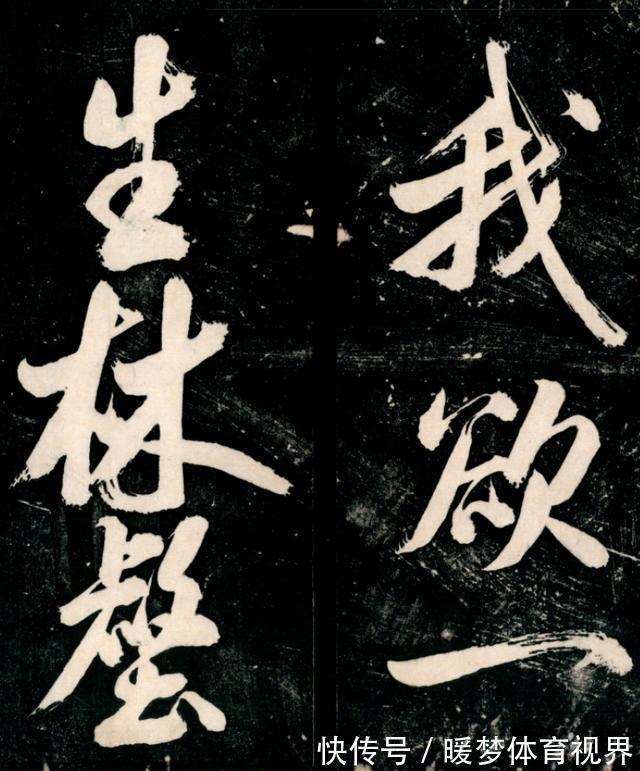 我欲一
生林壑
快传号/暖梦体育视界